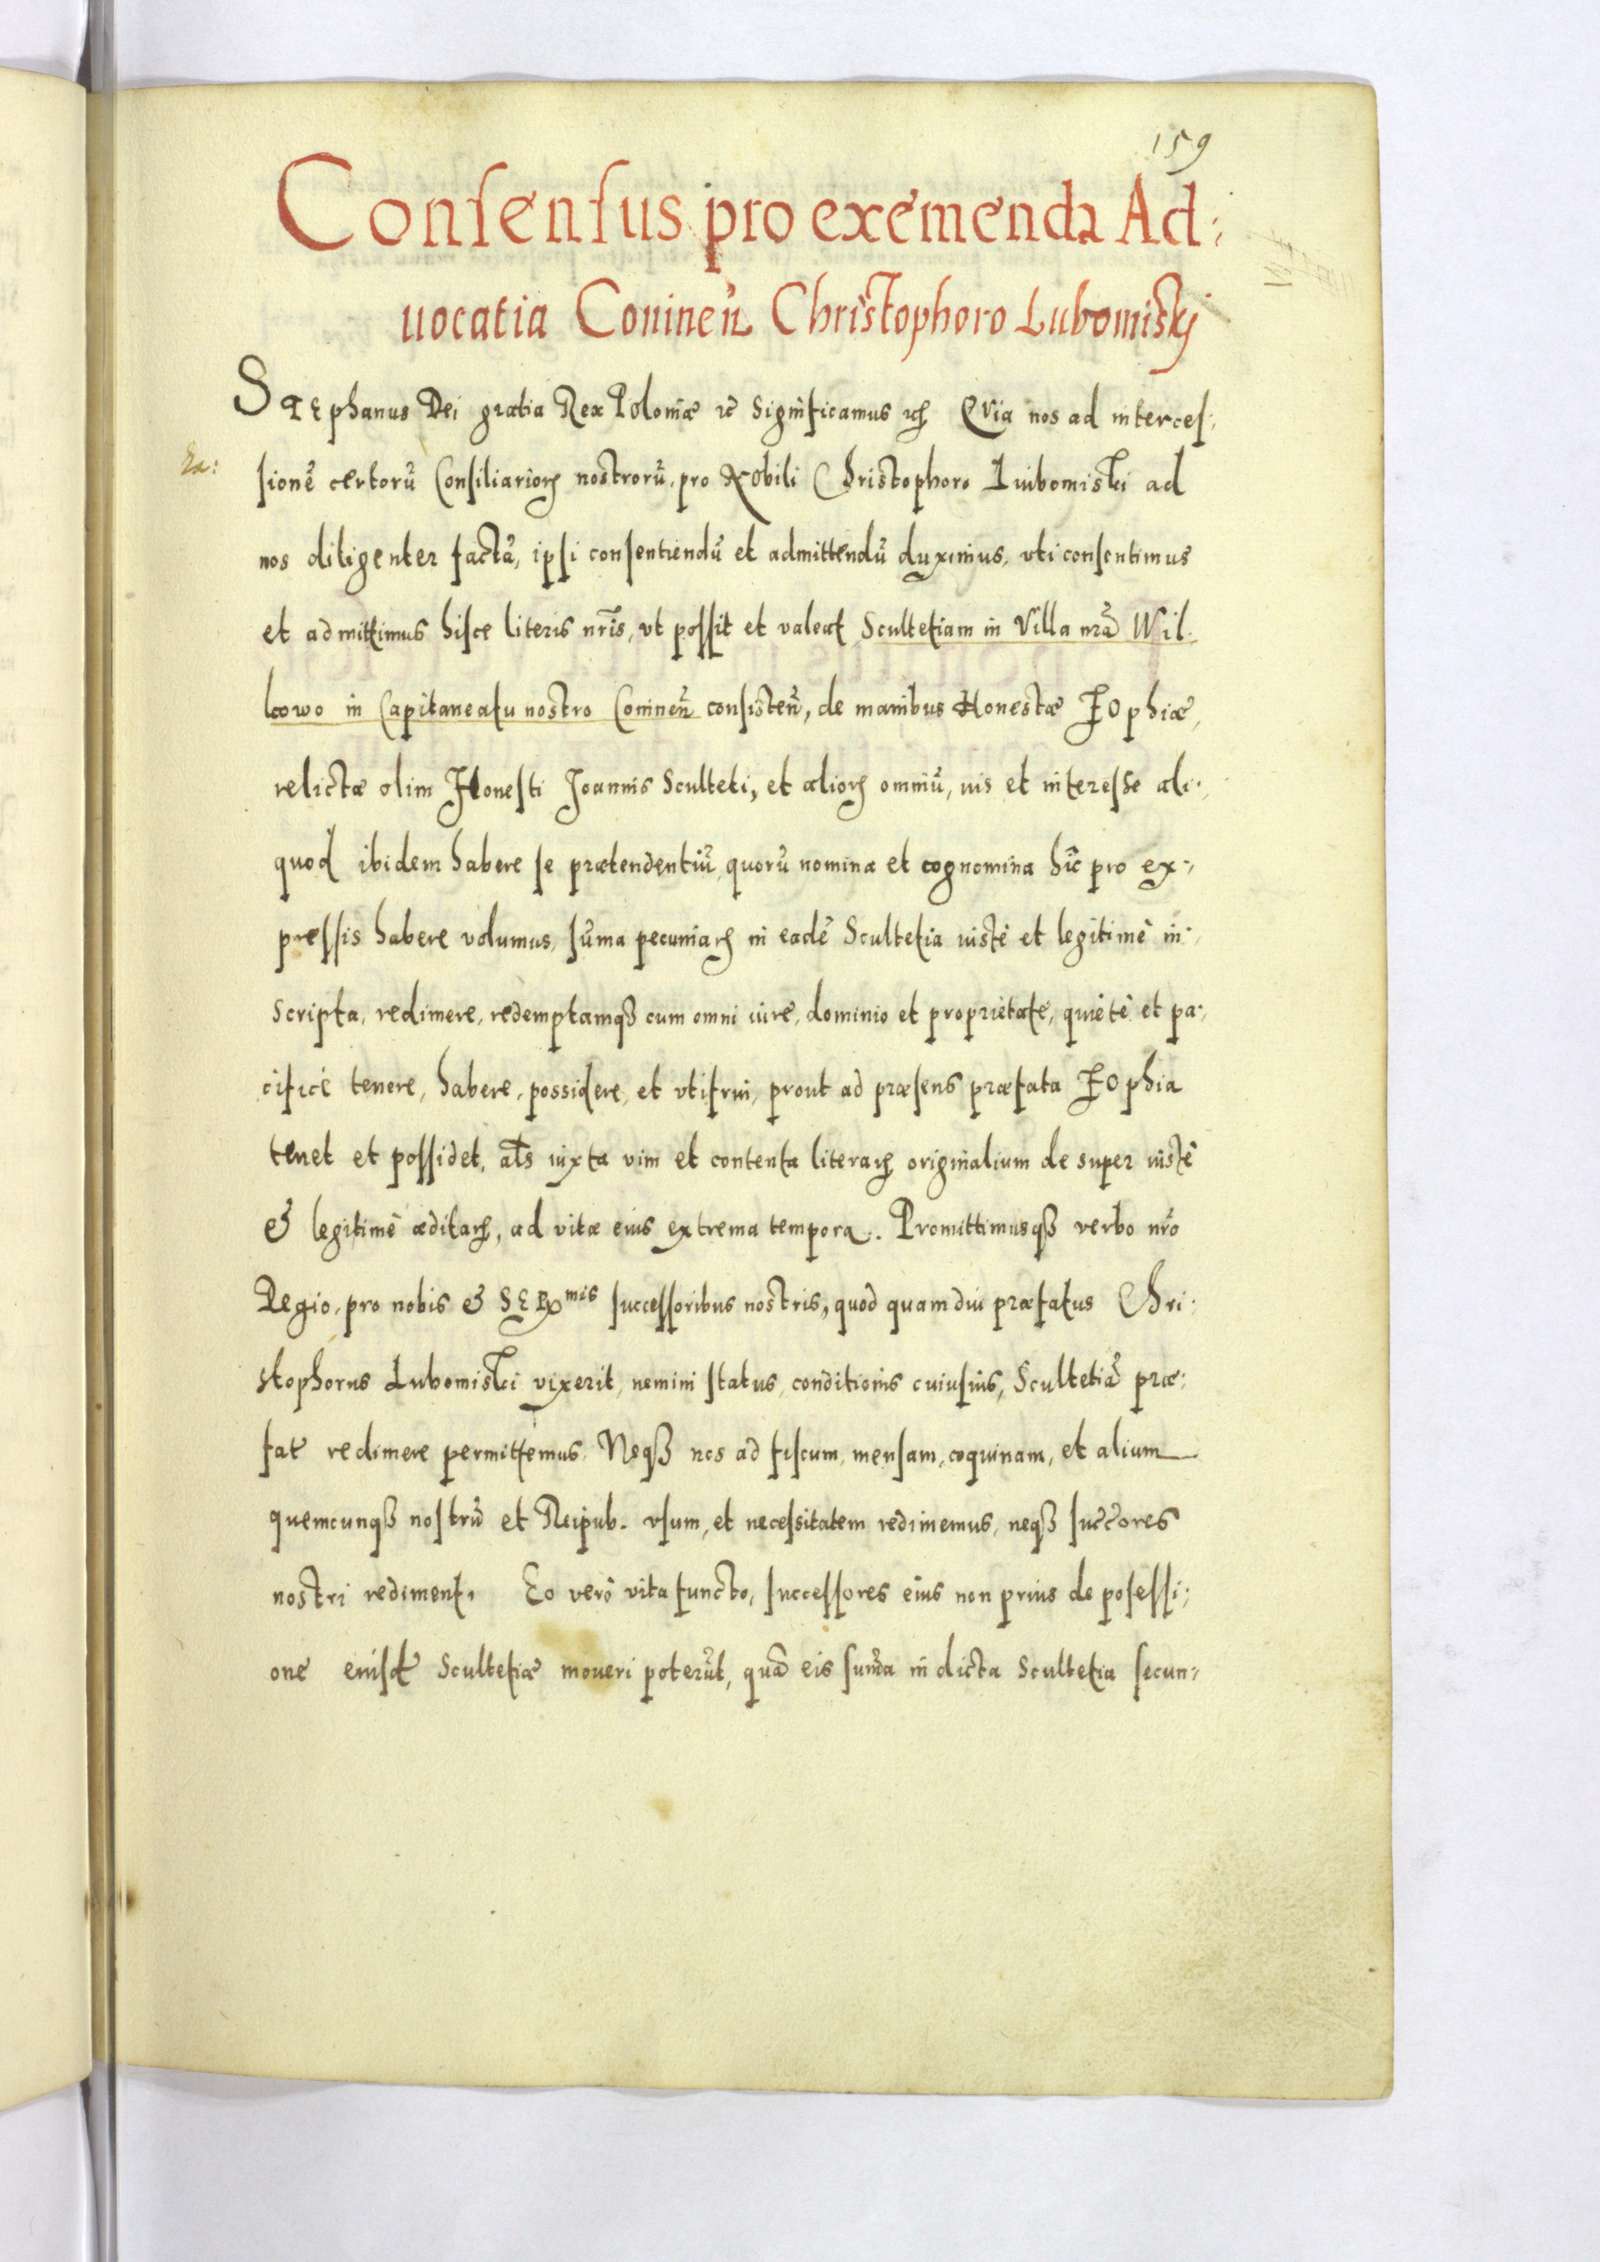 159
Consensus pro exemenda Ad:
uocatia Coninen̄ Christophoro Lubomiskj
STEphanus Dei gratia Rex Poloniæ &c̄ Significamus &c̄ Quia nos ad interces:
sionē certorū Consiliarioꝝ nostrorū, pro Nobili Christophoro Luibomiski ad
nos diligenter factā, ipsi consentiendū et admittendū duximus, vti consentimus
et admittimus hisce literis nr̄is, vt possit et valeat Scultetiam in Villa nrā Wil:
kowo in Capitaneatu nostro Coninen̄ consisten̄, de manibus Honestæ Zophiæ,
relictæ olim Honesti Joannis Sculteti, et alioꝝ omniū, ius et interesse ali:
quod ibidem habere se prætendentiū, quorū nomina et cognomina hic pro ex:
pressis habere volumus, sūma pecuniaꝝ in eadē Scultetia iustè et legitimè in:
scripta, redimere, redemptamqꝫ cum omni iure, dominio et proprietate, quietè et pa:
cificè tenere, habere, possidere, et vtifrui, prout ad præsens præfata Zophia
tenet et possidet, als iuxta vim et contenta literaꝝ originalium de super iustè
& legitimè æditaꝝ, ad vitæ eius extrema tempora. Promittimusqꝫ verbo nr̄o
Regio, pro nobis & SERmis successoribus nostris, quod quam diu præfatus Chri:
stophorus Lubomiski vixerit, nemini status, conditionis cuiusuis, Scultetiā præ:
fat redimere permittemus. Neqꝫ nos ad fiscum, mensam, coquinam, et alium
quemcunqꝫ nostrū et Reipub. vsum, et necessitatem redimemus, neqꝫ succōres
nostri rediment. Eo verò vita functo, successores eius non prius de posessi:
one eiusd Scultetiæ moueri poterūt, quā eis sum̄a in dicta Scultetia secun: